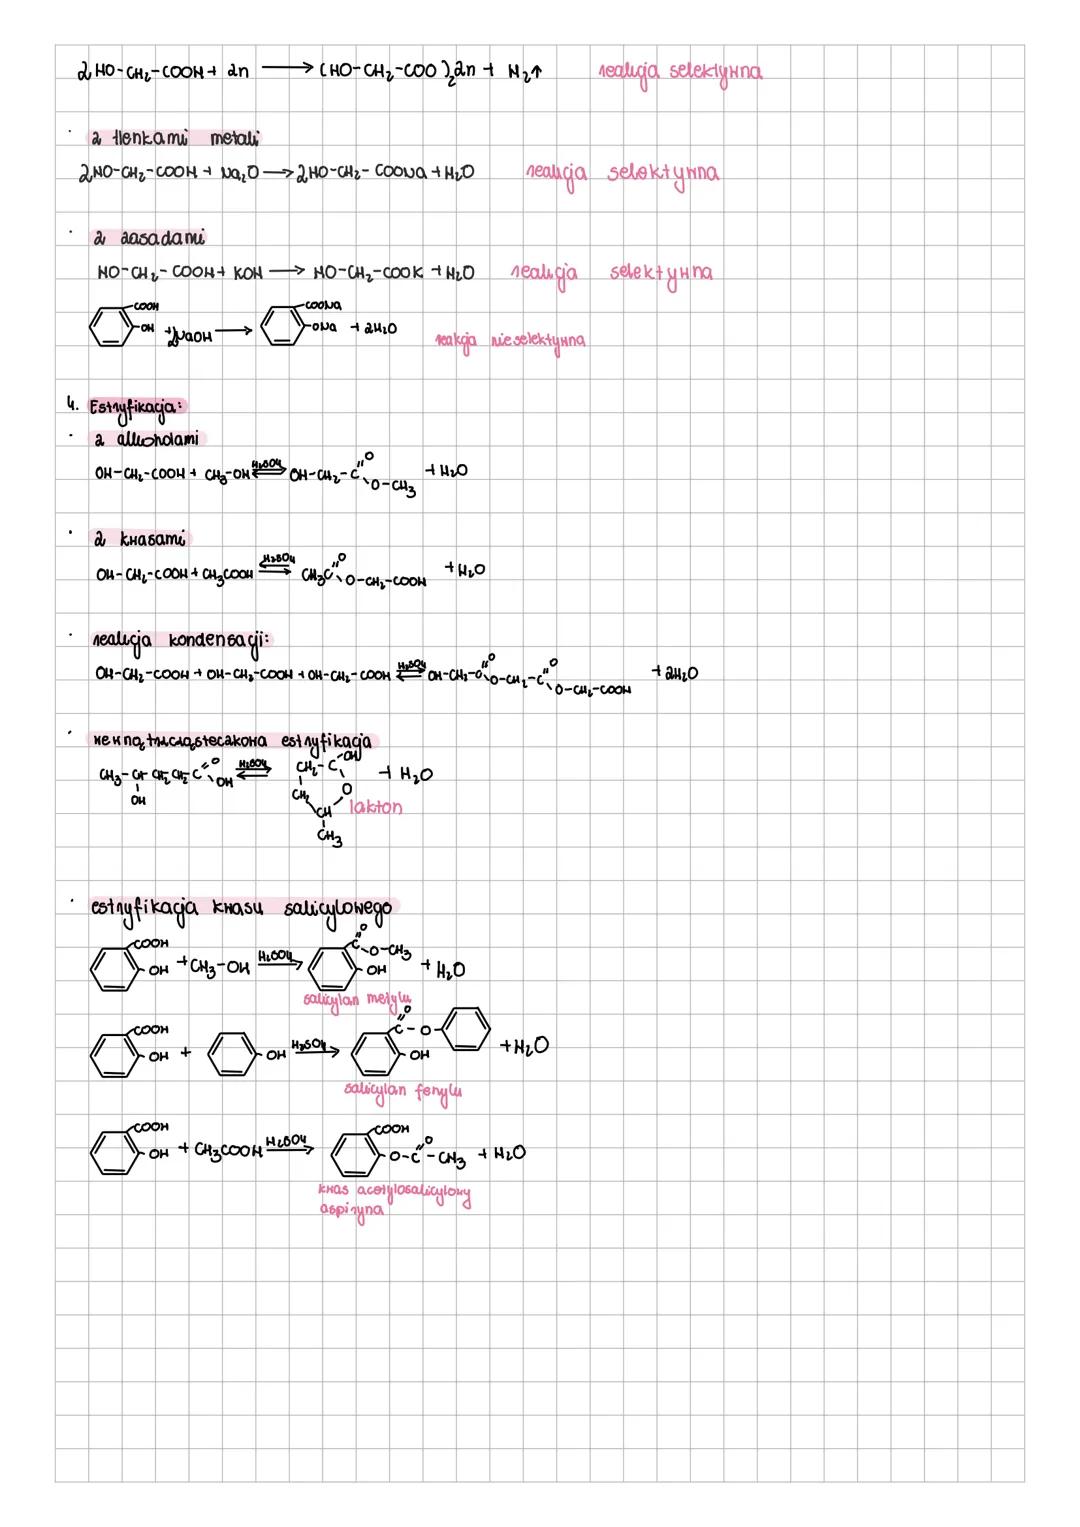 2HO-CH₂-COOH + Zn ⟶ (HO-CH₂-COO)₂Zn + H₂↑ reakcja selektywna
· z tlenkami metali
2HO-CH₂-COOH + Na₂O ⟶ 2HO-CH₂-COONa + H₂O reakcja selektywna
· z zasadami
HO-CH₂-COOH + KOH ⟶ HO-CH₂-COOK + H₂O reakcja selektywna
COOH OH + 2NaOH ⟶ COONa ONa + 2H₂O reakcja nieselektywna
4. Estryfikacja:
· z alkoholami
OH-CH₂-COOH + CH₃-OH ⇌ H₂SO₄ OH-CH₂-C=O O-CH₃ + H₂O
· z kwasami
OH-CH₂-COOH + CH₃COOH ⇌ H₂SO₄ CH₃C=O O-CH₂-COOH + H₂O
· reakcja kondensacji:
OH-CH₂-COOH + OH-CH₂-COOH + OH-CH₂-COOH ⇌ H₂SO₄ OH-CH₂-C=O O-CH₂-C=O O-CH₂-COOH + 2H₂O
· wewnątrzcząsteczkowa estryfikacja
CH₃-CH-CH₂CH₂C=O OH OH ⇌ H₂SO₄ CH₂-C OH CH₂ O CH CH₃ + H₂O
lakton
· estryfikacja kwasu salicylowego
COOH OH + CH₃-OH H₂SO₄ ⟶ C=O O-CH₃ OH + H₂O
salicylan metylu
COOH OH + OH H₂SO₄ ⟶ C=O -O- OH + H₂O
salicylan fenylu
COOH OH + CH₃COOH H₂SO₄ ⟶ COOH O-C=O-CH₃ + H₂O
kwas acetylosalicylowy
aspiryna